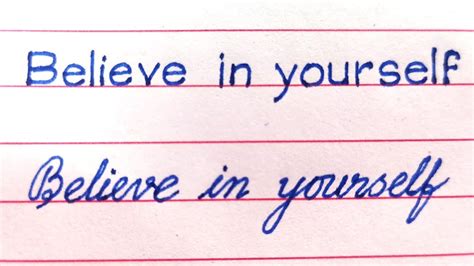 Believe in yourself
Believe in yourself